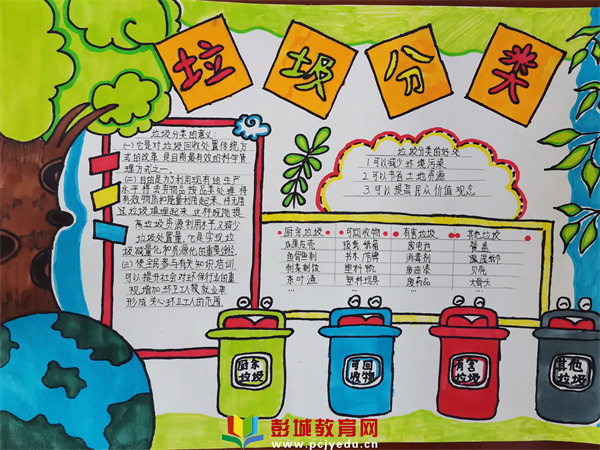 垃圾分类
垃圾分类的意义:
(一)它是对垃圾回收处置传统方
式的改革,是目前最有效的科学管
理方式之一。
(二)目的是为了利用现有的生产
水平将丢弃物品按品类处理,将
有效物质和能量利用起来,将无用
垃圾填埋起来,这样既能提
高垃圾资源利用水平又减少
垃圾处置量,它是实现垃
圾减量化和资源化的重要途径。
(三)使全民参与有关知识培训,
可以提升社会对环保行业的重
视,增加环卫工人就业率,
形成关心环卫工人的氛围。
垃圾分类的好处
1.可以减少环境污染
2.可以节省土地资源
3.可以提高民众价值观念
厨余垃圾 可回收物 有害垃圾 其他垃圾
瓜果花壳 报纸 纸箱 废电池 餐盒
鱼骨鱼刺 书本 消毒剂 湿纸巾
剩菜剩饭 塑料瓶 废油漆 贝壳
茶叶渣 塑料玩具 废药品 大骨头
... ... ... ...
厨余
垃圾
可回
收物
有害
垃圾
其他
垃圾
彭城教育网
www.pcjyedu.cn